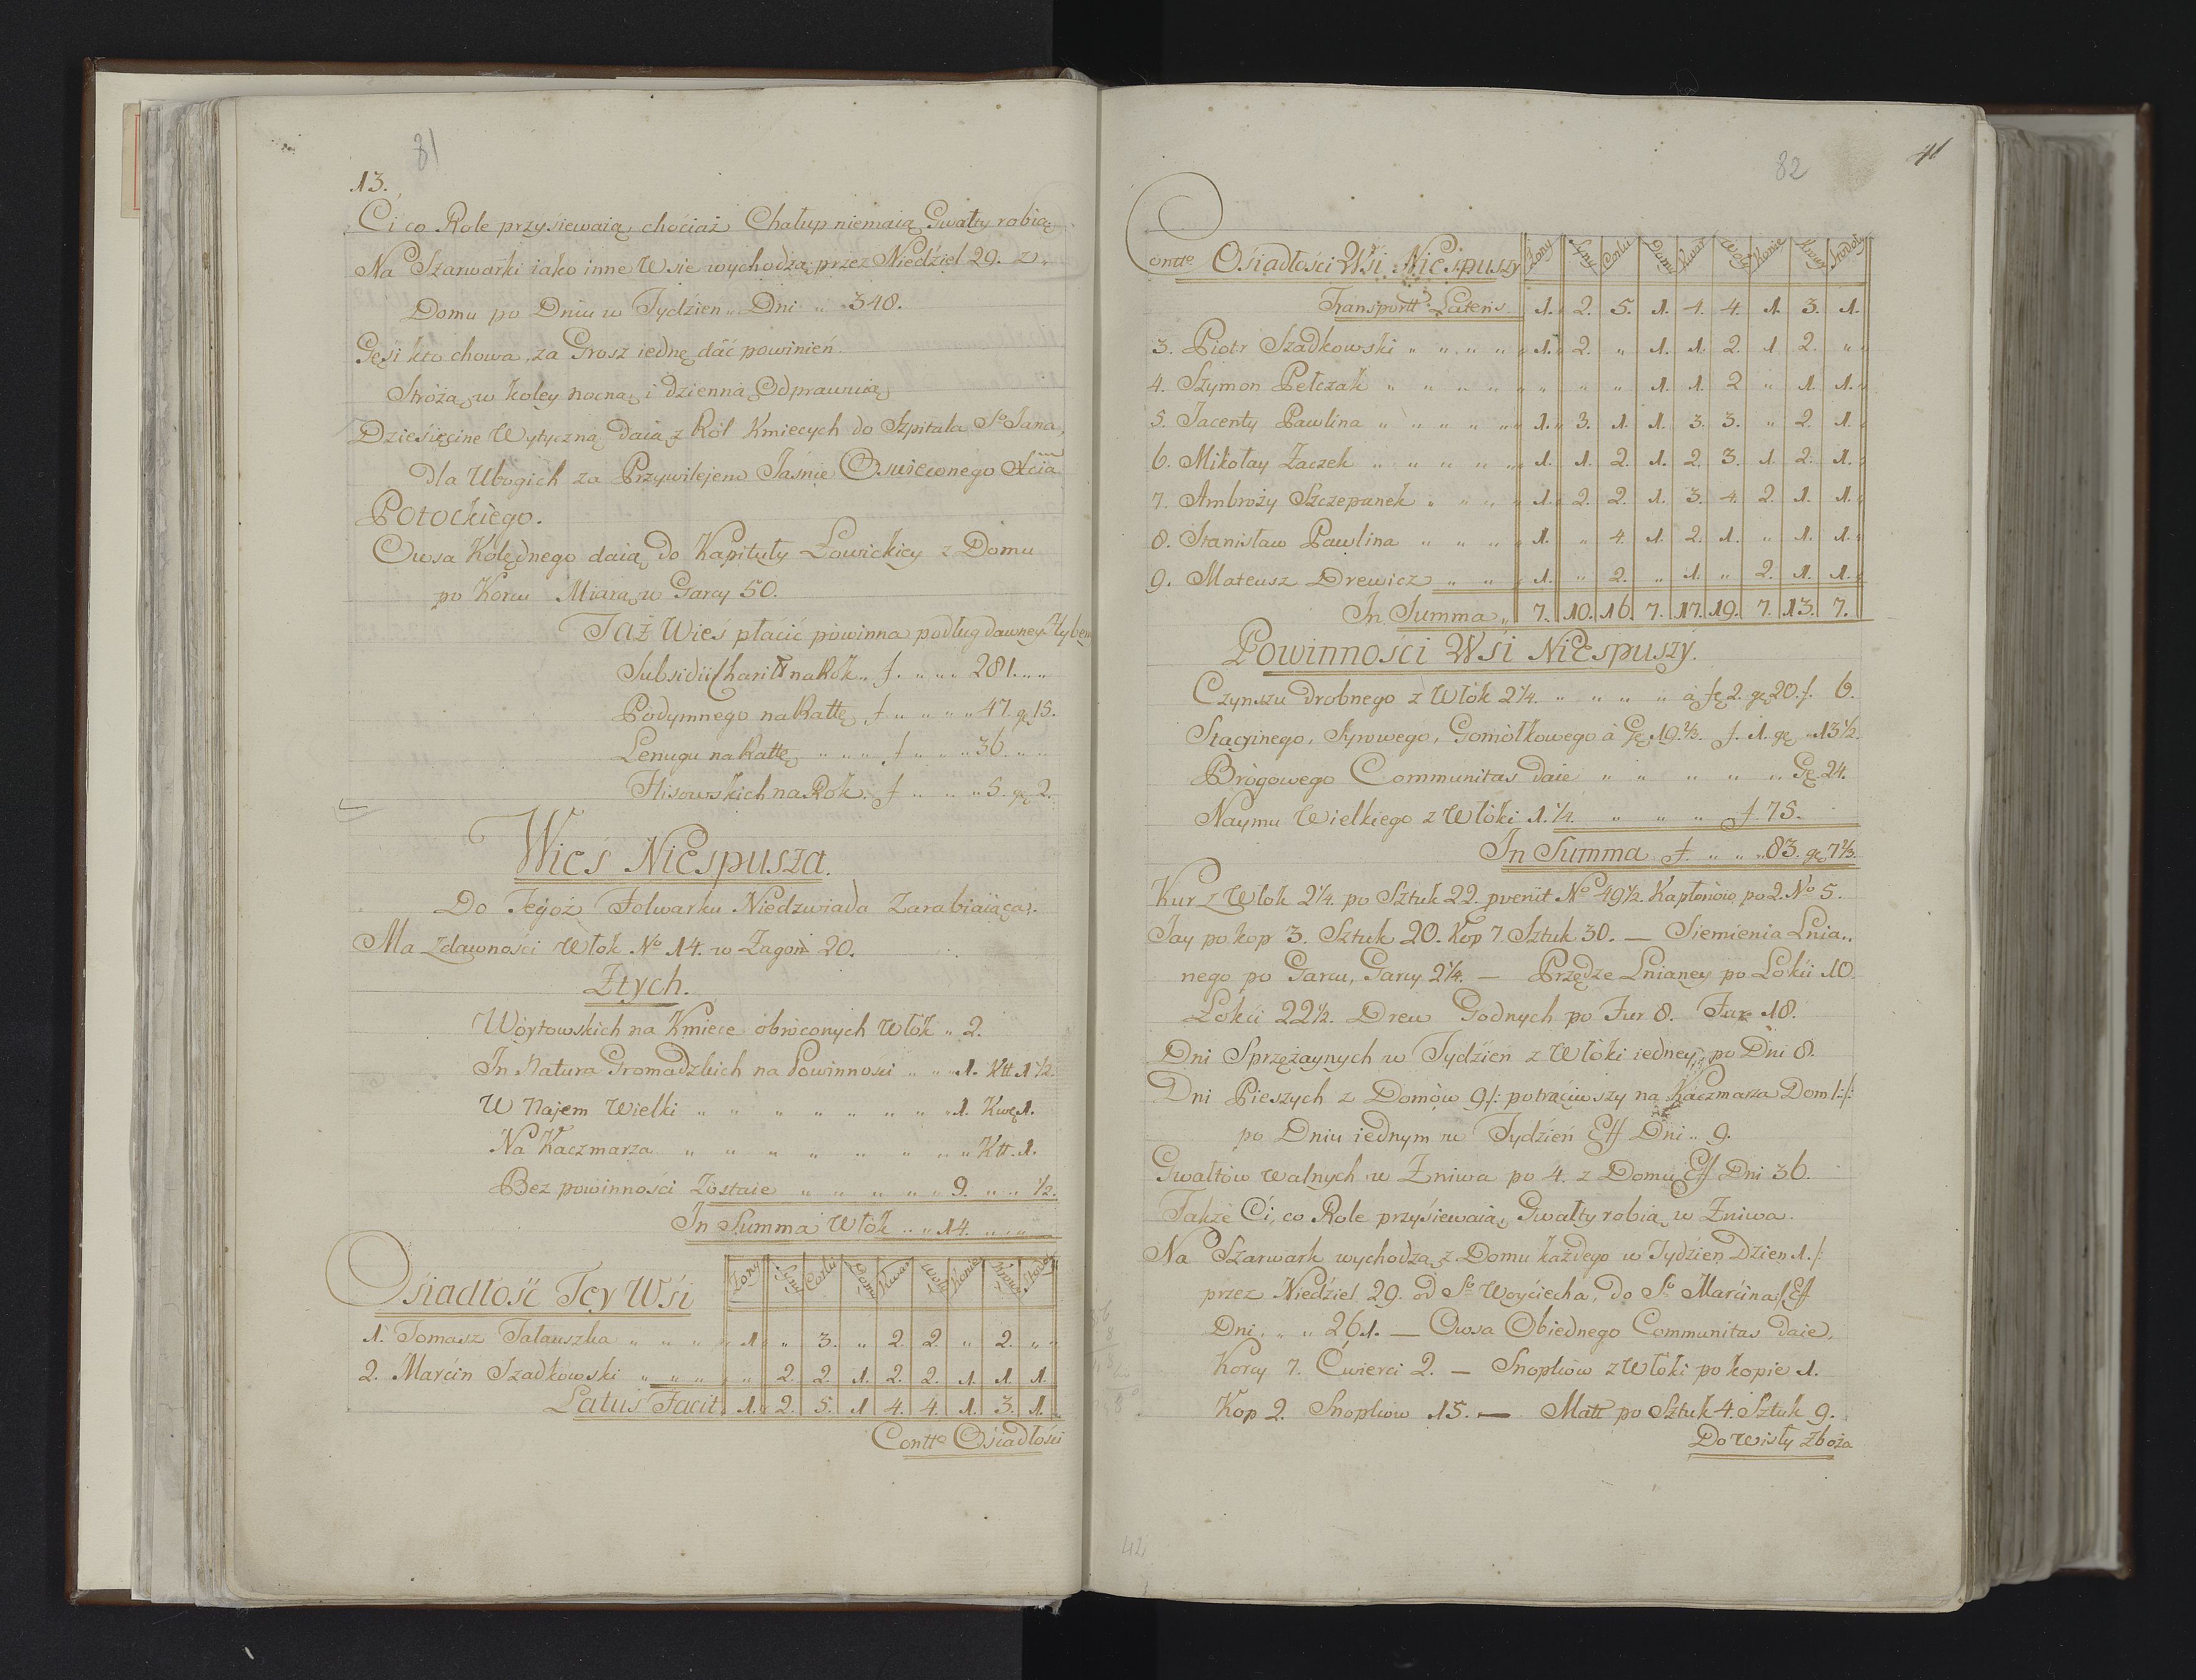 81
13.
Ci co Role przysiewaią chociaż Chałup niemaią Gwałty robią
Na Szarwarki iako inne Wsie wychodzą przez Niedziel 29. z
Domu po Dniu w Tydzien „ Dni „ 348.
Gęsi kto chowa, za Grosz iednę dać powinien
Stróżą w koley nocną i dzienną Odprawuią
Dziesięcine Wytyczną daią z Ról Kmiecych do Szpitala So Jana,
dla Ubogich za Przywilejem Jaśnie Oświeconego Xcia
Potockiego.
Owsa Kolędnego daią do Kapituły Łowickiey z Domu
po Korcu Miarą w Garcy 50.
Taż Wieś płacić powinna podług dawney
Subsidii Charitt na Rok „ f. „ „ „ 281. „ „
Podymnego na Rattę f „ „ „ „ 47. gę 15.
Lenugu na Rattę „ „ „ f „ „ „ 36. „ „
Flisowskich na Rok. f „ „ „ „ 5. gę 2.
Wieś Niespusza.
Do Tegoż Folwarku Niedzwiada Zarabiaiąca.
Ma zdawności Włok No 14. w Zagon 20.
Ztych.
Wóytowskich na Kmiece obróconych Włók „ 2.
In Natura Gromadzkich na Powinnosci „ „ „ 1. Ktt 1½.
W Najem Wielki „ „ „ „ „ „ „ „ 1. Kwę 1.
Na Kaczmarza „ „ „ „ „ „ „ „ Ktt. 1.
Bez powinności Zostaie „ „ „ „ „ 9. „ „ ½.
In Summa Włók „ „ 14. „ „ „
Osiadłość Tey Wśi Zony Syny Corki Domy Kwar Woły Konie Krowy Stodoły
1. Tomasz Tatauszka „ „ „ „ 1. „ 3. „ 2. 2. „ 2. „
2. Marcin Szadkowski „ „ „ „ 2. 2. 1. 2. 2. 1. 1. 1.
Latus Facit. 1. 2. 5. 1 4. 4. 1. 3. 1.
Contto Osiadłości
82
41
Contto Osiadłości Wśi Niespuszy Zony Syny Corki Domy Kwar Woły Konie Krowy Stodoły
Transportt Lateris 1. 2. 5. 1. 4. 4. 1. 3. 1.
3. Piotr Szadkowski „ „ „ „ 1. 2. „ 1. 1. 2. 1. 2. „
4. Szymon Pełczak „ „ „ „ „ „ „ 1. 1. 2 „ 1. 1.
5. Jacenty Pawlina „ „ „ „ „ 1. 3. 1. 1. 3. 3. „ 2. 1.
6. Mikołay Zaczek „ „ „ „ „ 1. 1. 2. 1. 2. 3. 1. 2. 1.
7. Ambroży Szczepanek „ „ „ „ 1. 2. 2. 1. 3. 4. 2. 1. 1.
8. Stanisław Pawlina „ „ „ „ 1. „ 4. 1. 2. 1. „ 1. 1.
9. Mateusz Drewicz „ „ „ 1. „ 2. „ 1. „ 2. 1. 1.
In Summa „ 7. 10. 16. 7. 17. 19. 7. 13. 7.
Powinności Wśi Niespuszy.
Czynszu drobnego z Włók 2¼. „ „ „ „ à fę 2. gę 20. f. 6.
Stacyinego, Syrowego, Gomółkowego à Gę 19.⅓. f. 1. gę „ 13½.
Brógowego Communitas daie „ „ „ „ „ Gę 24.
Naymu Wielkiego z Włóki 1.¼. „ „ „ f. 75.
In Summa f. „ „ „ 83. gę 7⅓.
Kur z Włok 2¼. po Sztuk 22. pvenit No 49½. Kapłonów po 2. No 5.
Jay po kop 3. Sztuk 20. Kop 7. Sztuk 30. — Siemienia Lnia„
nego po Garcu, Garcy 2¼. — Przędze Lnianey po Łokci 10.
Łokci 22½. Drew Godnych po Fur 8. Fur 18.
Dni Sprzężaynych w Tydzień z Włóki iedney po Dni 8.
Dni Pieszych z Domów 9/: potrąciwszy na Kaczmarza Dom 1:/:
po Dniu iednym w Tydzień Eff Dni „ 9.
Gwałtów walnych w Zniwa po 4. z Domu Eff Dni 36.
Także Ci, co Role przysiewaią, Gwałty robią w Zniwa.
Na Szarwark wychodzą z Domu każdego w Tydzien Dzien 1./:
przez Niedziel 29. od So Woyciecha, do So Marcina:/ Eff
Dni, „ „ 261. — Owsa Obiednego Communitas daie,
Korcy 7. Ćwierci 2. — Snopków z Włóki po kopie 1.
Kop 2. Snopków 15. — Matt po Sztuk 4. Sztuk 9.
Do Wisły Zboża
42